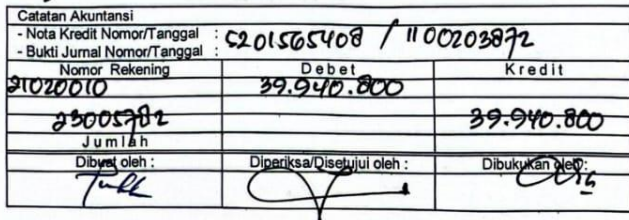 Catatan Akuntansi
- Nota Kredit Nomor/Tanggal : 5201565408 / 1100203872
- Bukti Jurnal Nomor/Tanggal :
Nomor Rekening Debet Kredit
21020010 39.940.800
23005782 39.940.800
Jumlah
Dibuat oleh : Diperiksa/Disetujui oleh : Dibukukan oleh: